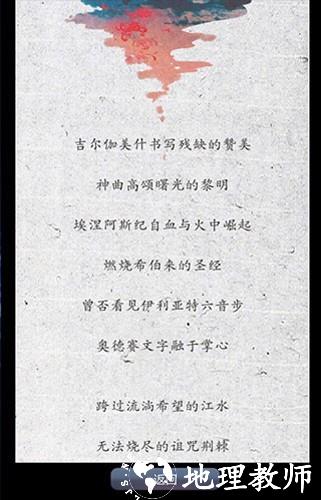 吉尔伽美什书写残缺的赞美
神曲高颂曙光的黎明
埃涅阿斯纪自血与火中崛起
燃烧希伯来的圣经
曾否看见伊利亚特六音步
奥德赛文字融于掌心
跨过流淌希望的江水
无法烧尽的诅咒荆棘
返回
地理教师